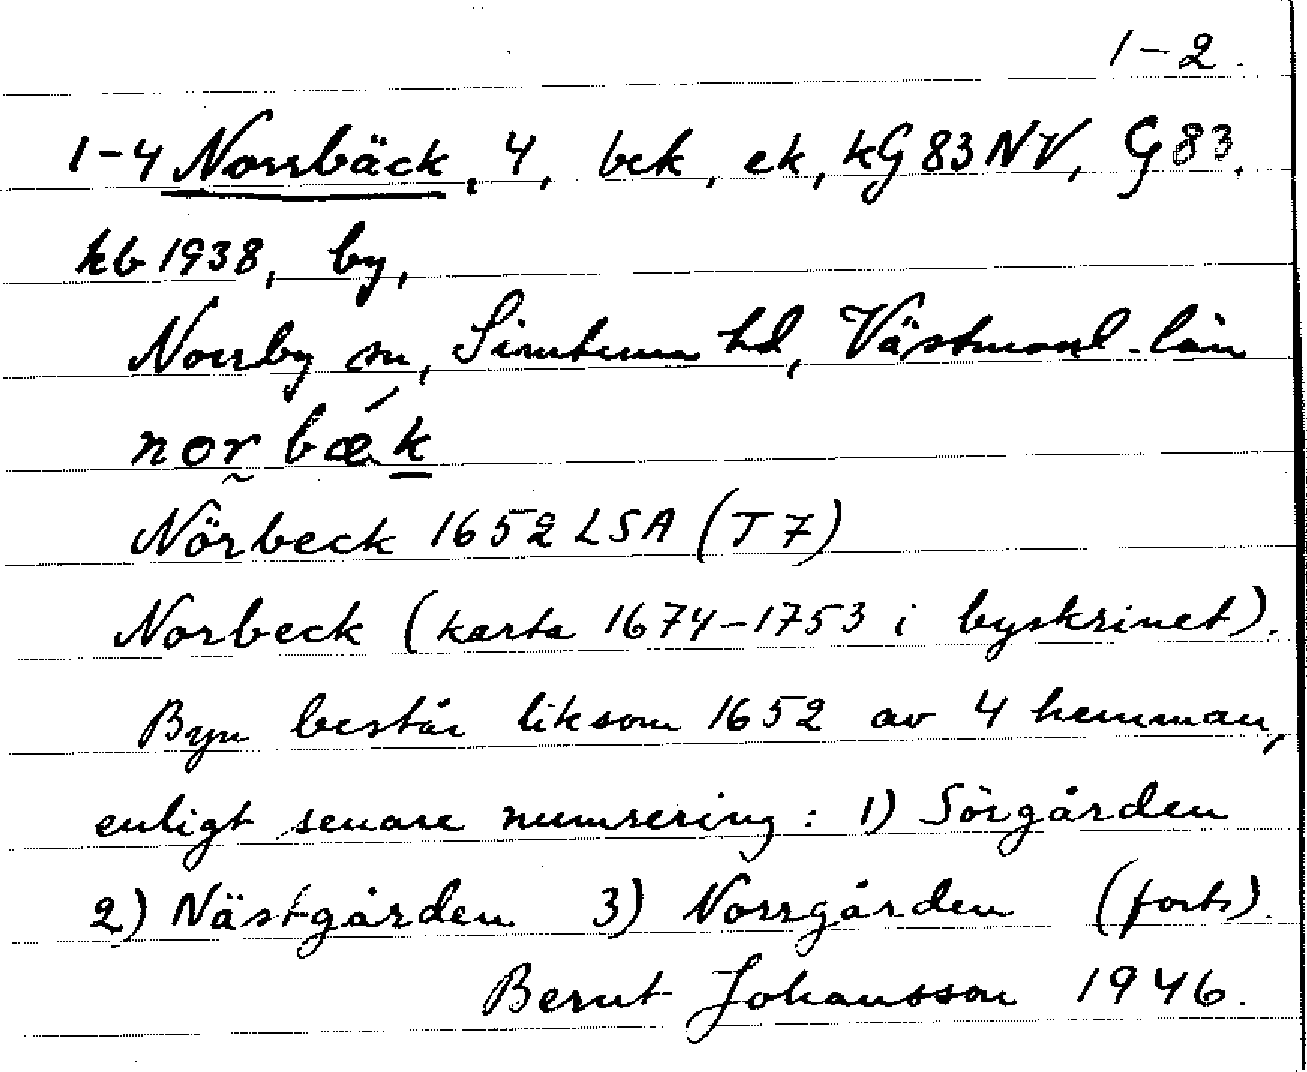 1-2.
1-4 Norrbäck, 4, bek, ek, kG 83 NV, G 83.
kb 1938, by,
Norrby sn, Simtuna hd, Västmanl. län
norbǽk
Nörbeck 1652 LSA (T 7)
Norbeck (karta 1674-1753 i byskrinet).
Byn består liksom 1652 av 4 hemman,
enligt senare numrering: 1) Sörgården
2) Nästgården 3) Norrgården (forts).
Bernt Johansson 1946.